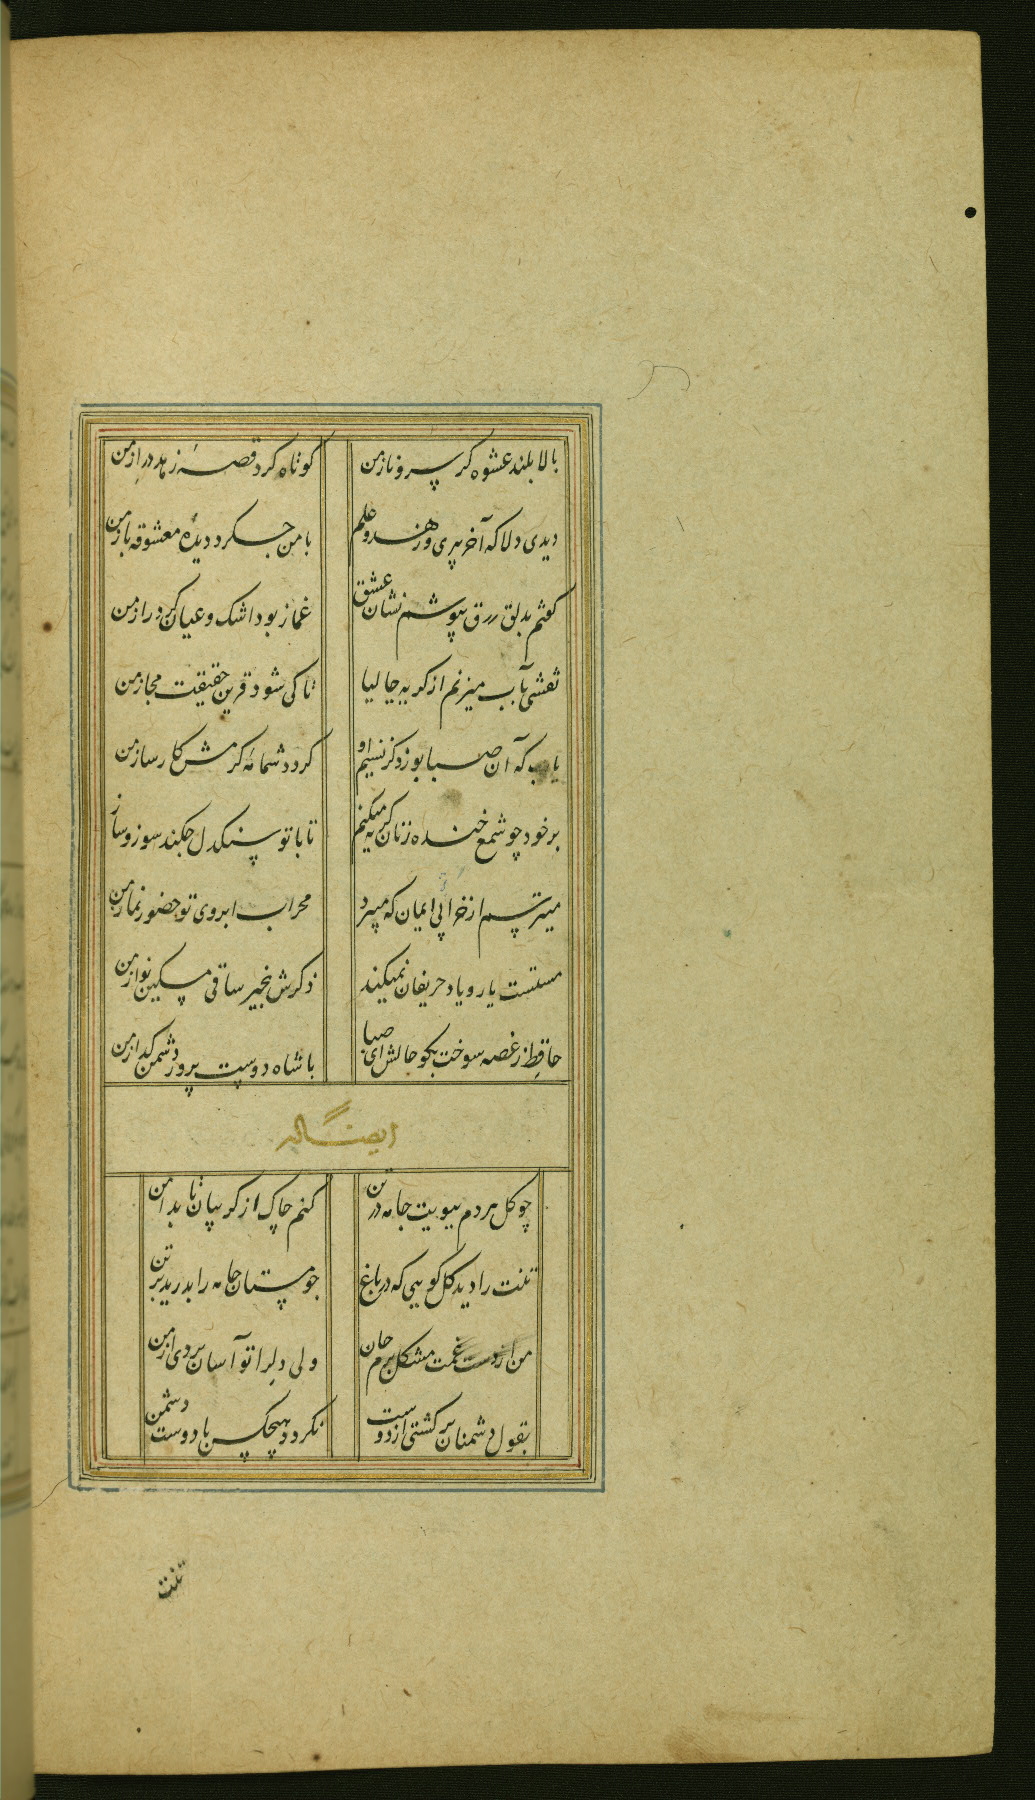 بالا بلند عشوه کر سرو ناز من کوتاه کرد قصهٔ زهد دراز من
دیدی دلا که آخر پیری و زهد و علم با من چه کرد دیدهٔ معشوقه باز من
کفتم بدلق زرق بپوشم نشان عشق غماز بود اشک و عیان کرد راز من
نقشی بآب میزنم از کریه حالیا تا کی شود قرین حقیقت مجاز من
یارب که آن صبا بوزد کز نسیم او کردد شمامهٔ کرمش کارساز من
بر خود چو شمع خنده زنان کریه میکنم تا با تو سنکدل چکند سوز و ساز من
میترسم از خرابی ایمان که میبرد محراب ابروی تو حضور نماز من
مستست یار و یاد حریفان نمیکند ذکرش بخیر ساقی مسکین نواز من
حافظ ز غصه سوخت بکو حالش ای صبا با شاه دوست پرور دشمن کداز من
ایضاً له
چو کل هر دم ببویت جامه در تن کنم چاک از کریبان تا بدامن
تنت را دید کل کویی که در باغ چو مستان جامه را بدرید بر تن
من از دست غمت مشکل برم جان ولی دلرا تو آسان بردی از من
بقول دشمنان برکشتی از دوست نکردد هیچکس با دوست دشمن
تنت